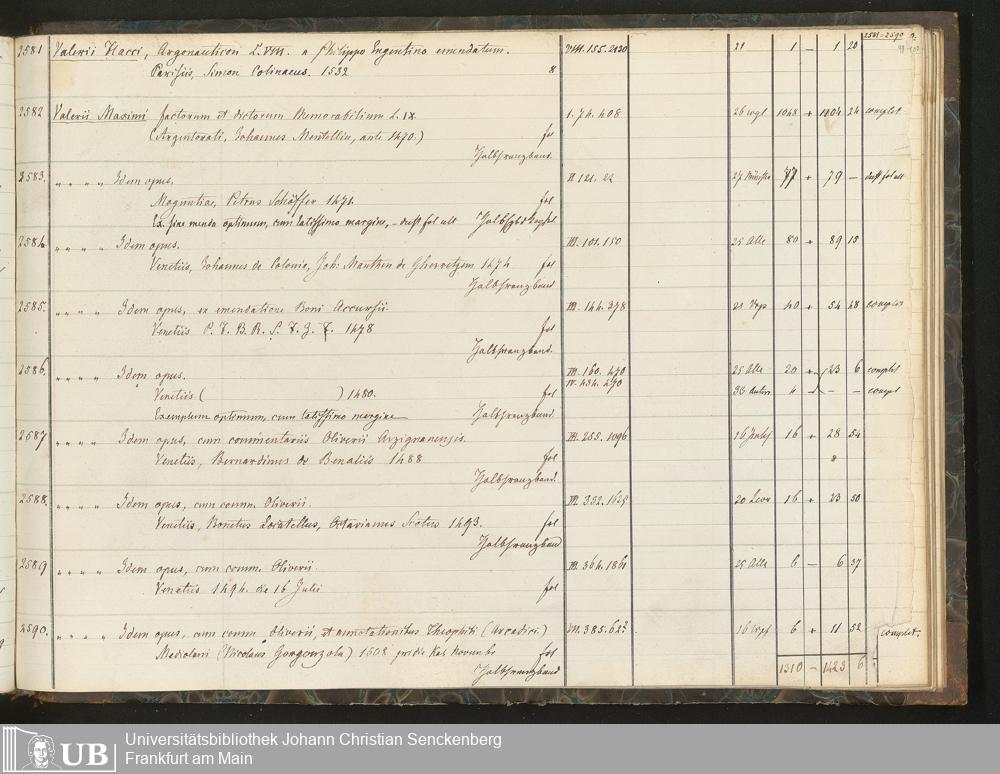 2581-2590
2581 Valerii Flacci, Argonauticon L.VIII. a Philippo Engentino emendatum. VIII. 155. 2130 21 1 — 1 20
Parisiis, Simon Colinaeus. 1532 8
2582 Valerii Maximi factorum et dictorum Memorabilium L. IX. I. 74. 408 1048 + 1104 24 complet
(Argentorati, Johannes Mentellin, ante 1470.) fol
Halbfranzband.
2583. " " " " Idem opus. II. 121. 22 77 + 79 — deest fol ult
Moguntiae, Petrus Schöffer 1471. fol
Ex. sine menda optimum, cum latissimo margine, - deest fol ult
2584 " " " " Idem opus. III. 101. 150 25 Alle 80 + 89 15
Venetiis, Johannes de Colonia, Joh: Manthen de Gherretzem 1474 fol
Halbfranzband
2585. " " " " Idem opus, ex emendatione Boni Accursii. III. 144. 378 40 + 54 28 complet
Venetiis P. T. B. R. S. T. Z. F. 1478 fol
Halbfranzband.
2586. " " " " Idem opus. III. 160. 470 25 Alle 20 + 23 6 complet
IV. 434. 290 4 — — — complet
Venetiis ( ) 1480. fol
Exemplum optimum, cum latissimo margine Halbfranzband
2587 " " " " Idem opus, cum commentariis Oliverii Arzignanensis. III. 255. 1096 16 + 28 54
Venetiis, Bernardinus de Benaliis 1488 fol
Halbfranzband.
2588. " " " " Idem opus, cum comm. Oliverii. III. 332. 1629 16 + 23 50
Venetiis, Bonetus Locatellus, Octavianus Scotus 1493. fol
Halbfranzband
2589 " " " " Idem opus, cum comm. Oliverii III. 364. 1861 25 Alle 6 — 6 37
Venetiis 1494. de 16 Julii fol
2590. " " " " Idem opus, cum comm Oliverii, et annotationibus Theophili (Arcadici.) VII. 385. 62 6 + 11 52 complet.
Mediolani (Nicolaus Gorgonzola) 1508 pridie Kal Novembr fol
Halbfranzband 1310 — 1423 6
UB Universitätsbibliothek Johann Christian Senckenberg
Frankfurt am Main